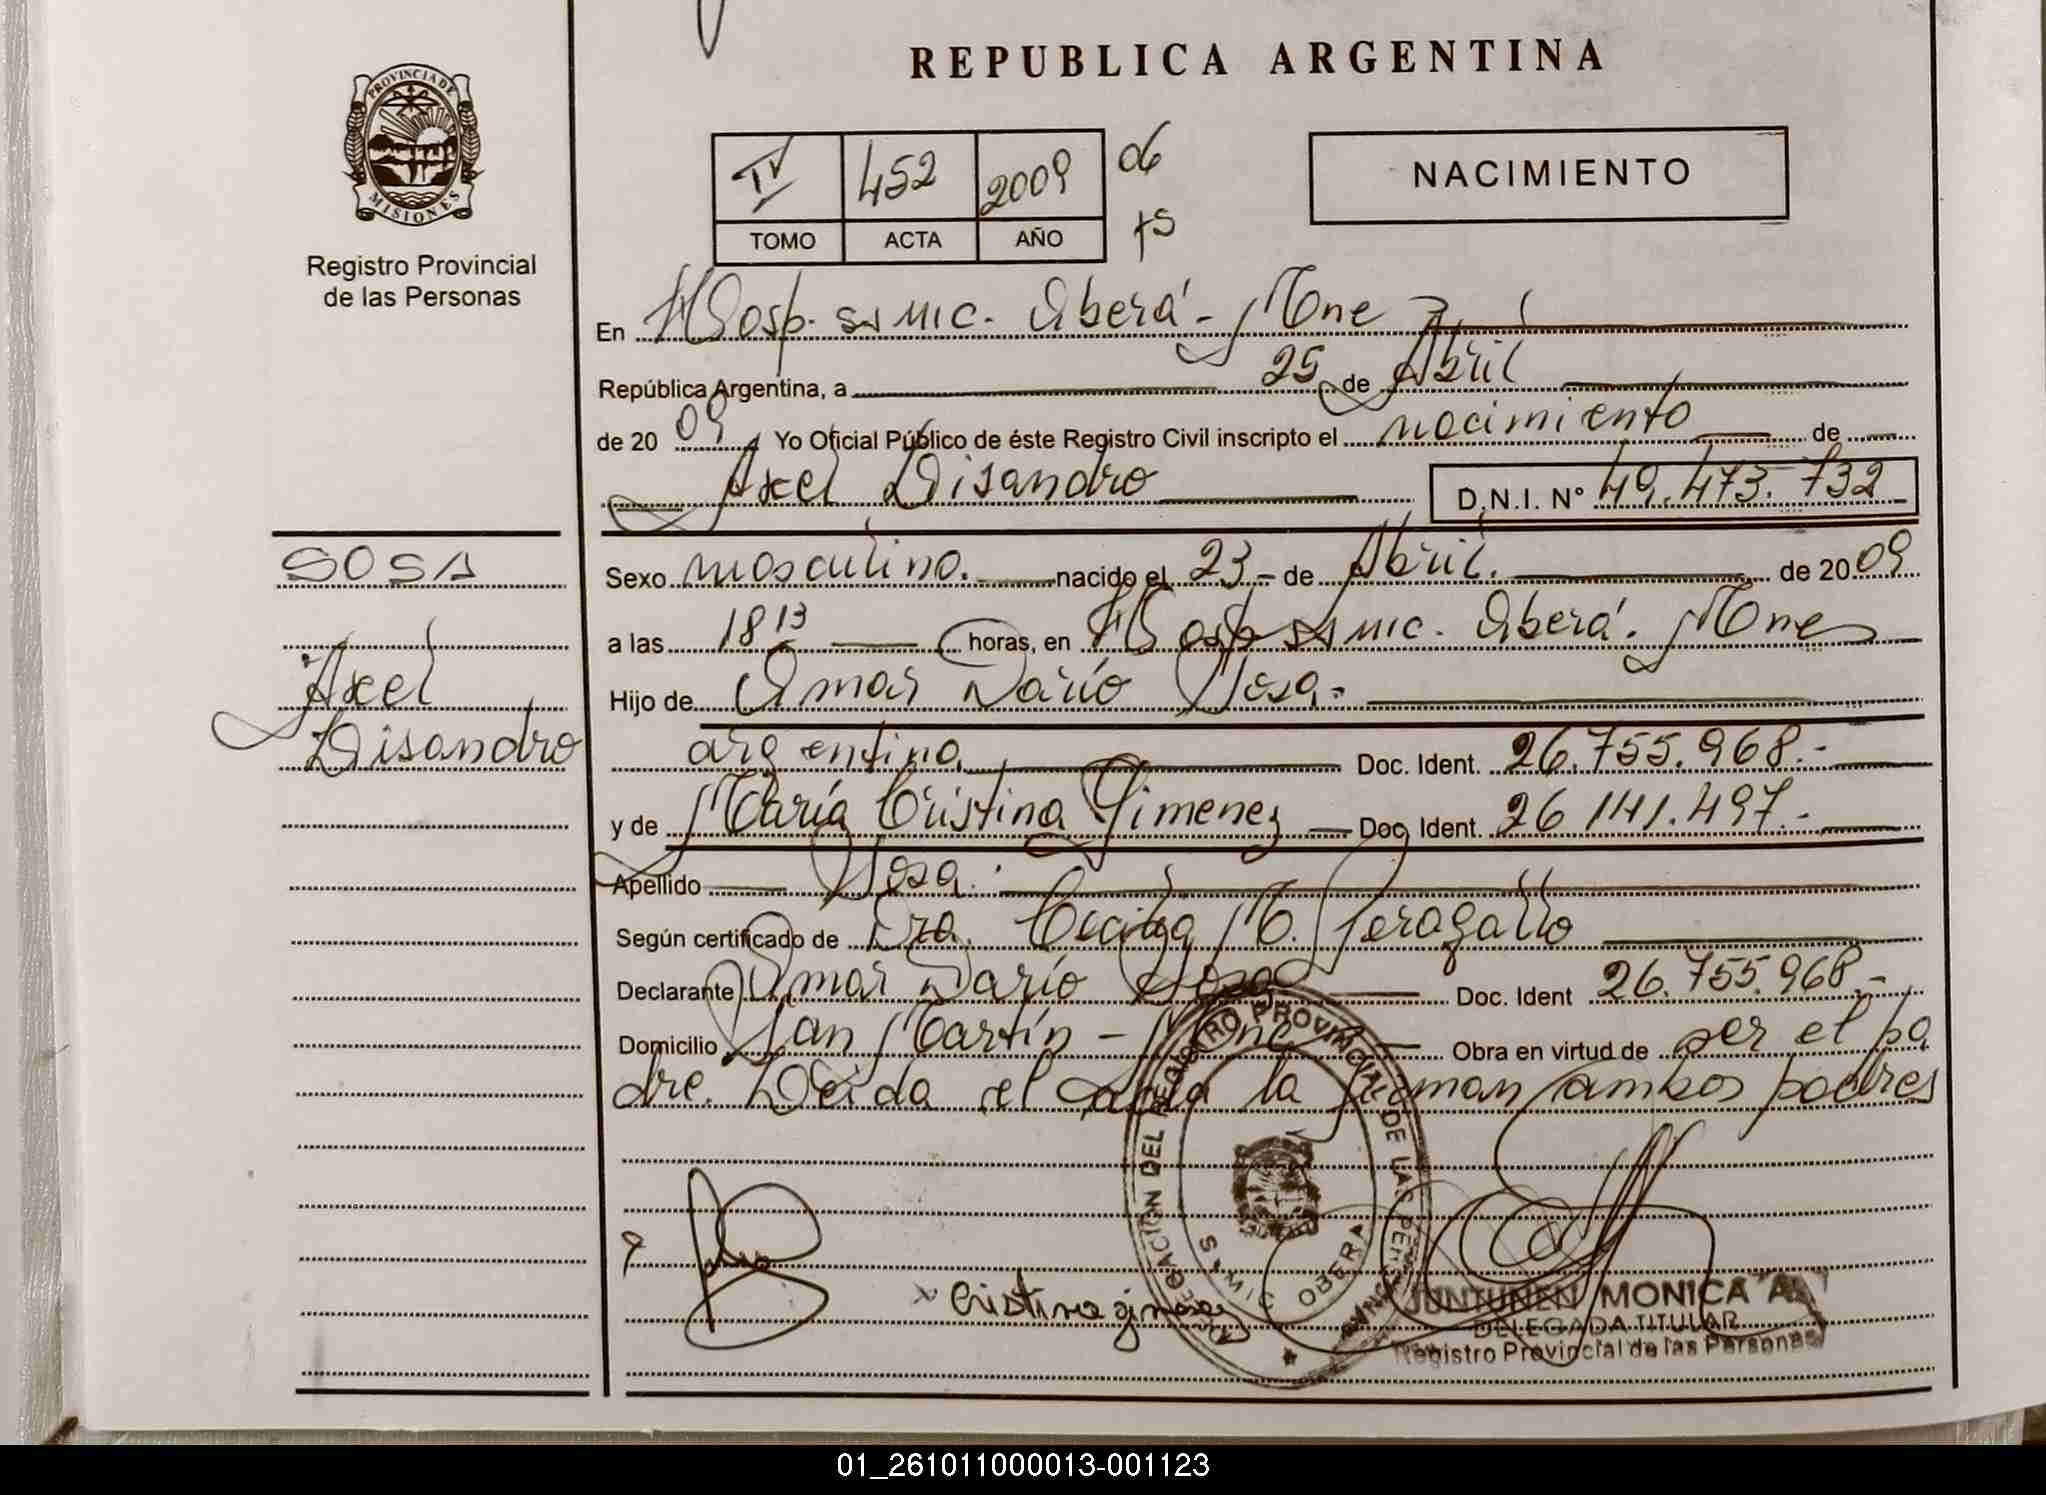 REPUBLICA ARGENTINA
PROVINCIA DE MISIONES
Registro Provincial
de las Personas
IV 452 2009 06
TOMO ACTA AÑO
NACIMIENTO
En Hosp. SAMIC. Oberá - Mnes
República Argentina, a 25 de Abril
de 2009 Yo Oficial Público de éste Registro Civil inscripto el nacimiento de
Axel Lisandro D.N.I. Nº 49.473.732
SOSA
Axel
Lisandro
Sexo masculino. nacido el 23 - de Abril. de 2009
a las 18 13 horas, en Hosp SAMIC. Oberá. Mnes
Hijo de Omar Darío Sosa.-
argentino Doc. Ident. 26.755.968.-
y de María Cristina Gimenez Doc. Ident. 26 141.497.-
Apellido Sosa.
Según certificado de Dra. Cecilia M. Peragallo
Declarante Omar Darío Sosa Doc. Ident 26.755.968.-
Domicilio San Martín - Mnes Obra en virtud de ser el pa
dre. Leida el acta la firman ambos padres
DELEGACION DEL REGISTRO PROVINCIAL DE LAS PERSONAS
OBERA
x Cristina gimenez
JUNTUNEN MONICA A.
DELEGADA TITULAR
Registro Provincial de las Personas
01_261011000013-001123